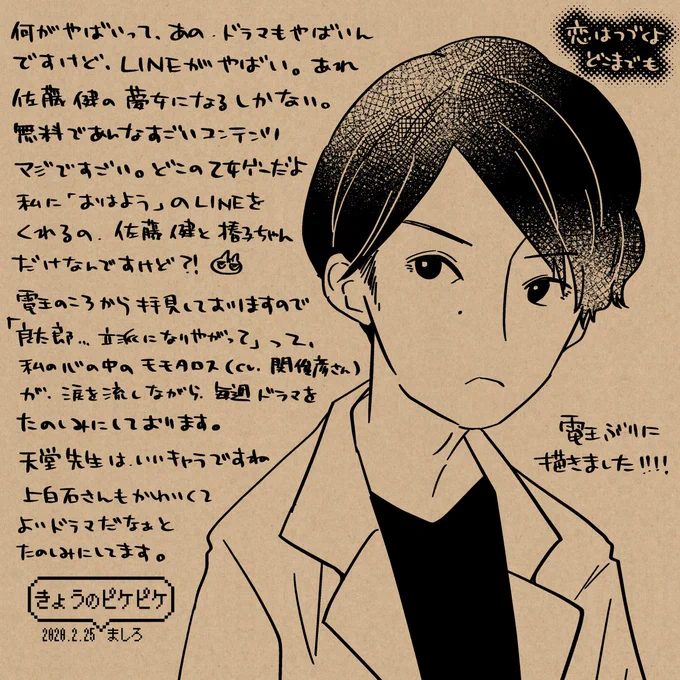 恋はつづくよ
どこまでも
何がやばいって、あの・ドラマもやばいん
ですけど、LINEがやばい。あれ
佐藤健の夢女になるしかない。
無料であんなすごいコンテンツ
マジですごい。どこの乙女ゲーだよ
私に「おはよう」のLINEを
くれるの、佐藤健と椿子ちゃん
だけなんですけど?!
電王のころから拝見しておりますので
「良太郎… 立派になりやがって」って、
私の心の中のモモタロス(cv. 関俊彦さん)
が、涙を流しながら、毎週ドラマを
たのしみにしております。
天堂先生は、いいキャラですね
上白石さんもかわいくて
よいドラマだなぁと
たのしみにしてます。
電王ぶりに
描きました!!!!
きょうのピケピケ
2020.2.25 ましろ